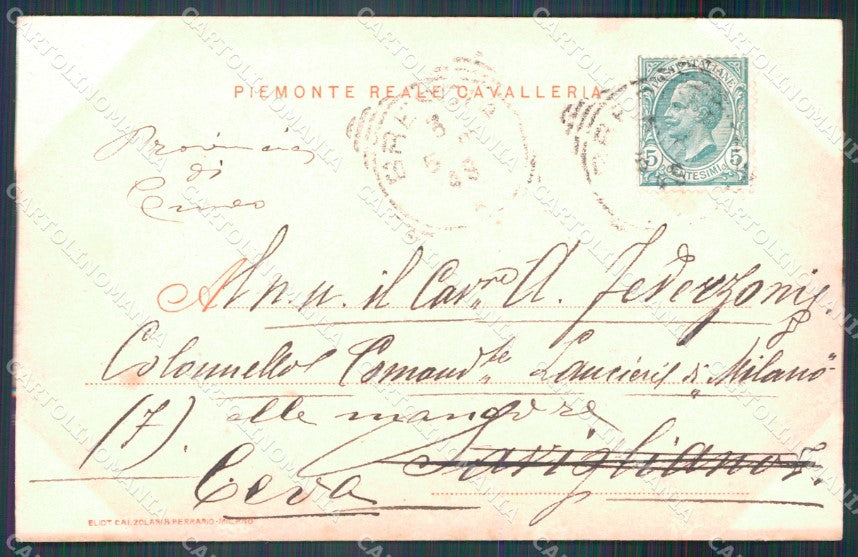 PIEMONTE REALE CAVALLERIA
POSTE ITALIANE
5 CENTESIMI 5
BRE
Provincia
di
Cuneo
All'Ill. il Cav.re A. Federzoni
Colonnello Comand.te Lancieri di "Milano"
(7). alle manovre
Savigliano
Ceva
ELIOT CALZOLARI & FERRARIO-MILANO
CARTOLINOMANIA